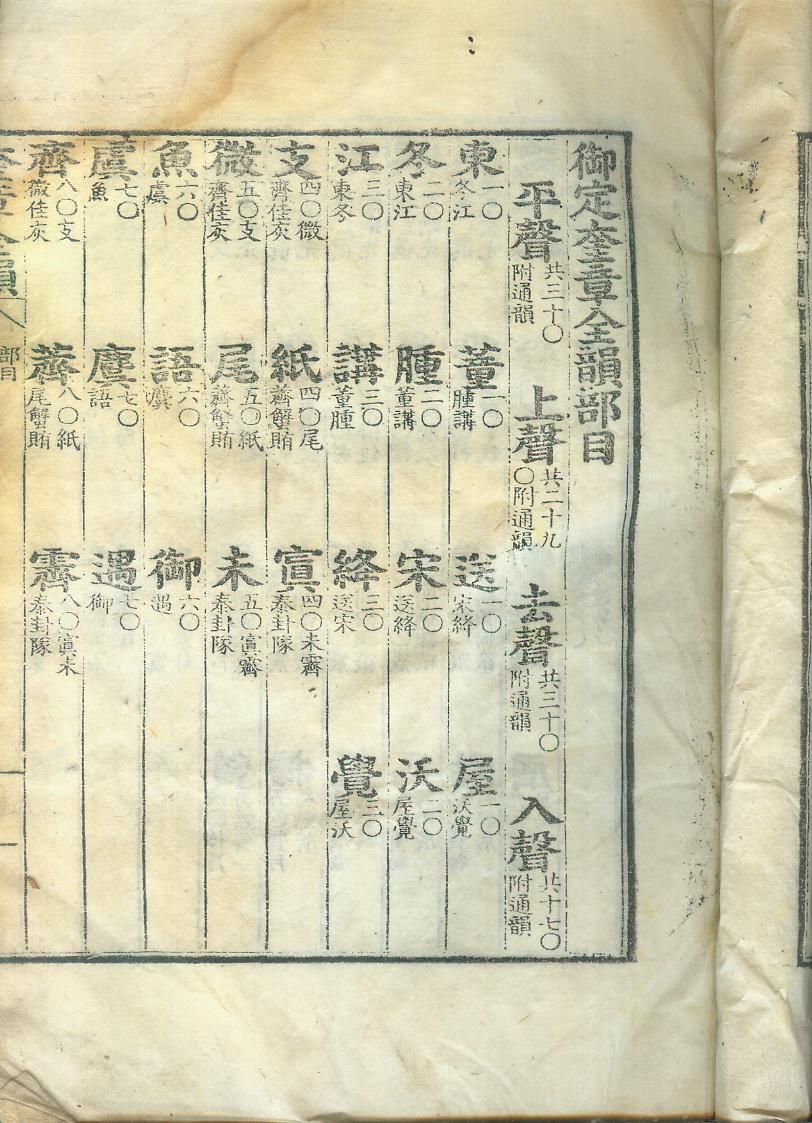 御定奎章全韻部目
平聲共三十○附通韻 上聲共二十九○附通韻 去聲共三十○附通韻 入聲共十七○附通韻
東一○冬江 董一○腫講 送一○宋絳 屋一○沃覺
冬二○東江 腫二○董講 宋二○送絳 沃二○屋覺
江三○東冬 講三○董腫 絳三○送宋 覺三○屋沃
支四○微齊佳灰 紙四○尾薺蟹賄 寘四○未霽泰卦隊
微五○支齊佳灰 尾五○紙薺蟹賄 未五○寘霽泰卦隊
魚六○虞 語六○麌 御六○遇
虞七○魚 麌七○語 遇七○御
齊八○支微佳灰 薺八○紙尾蟹賄 霽八○寘未泰卦隊
奎章全韻 部目